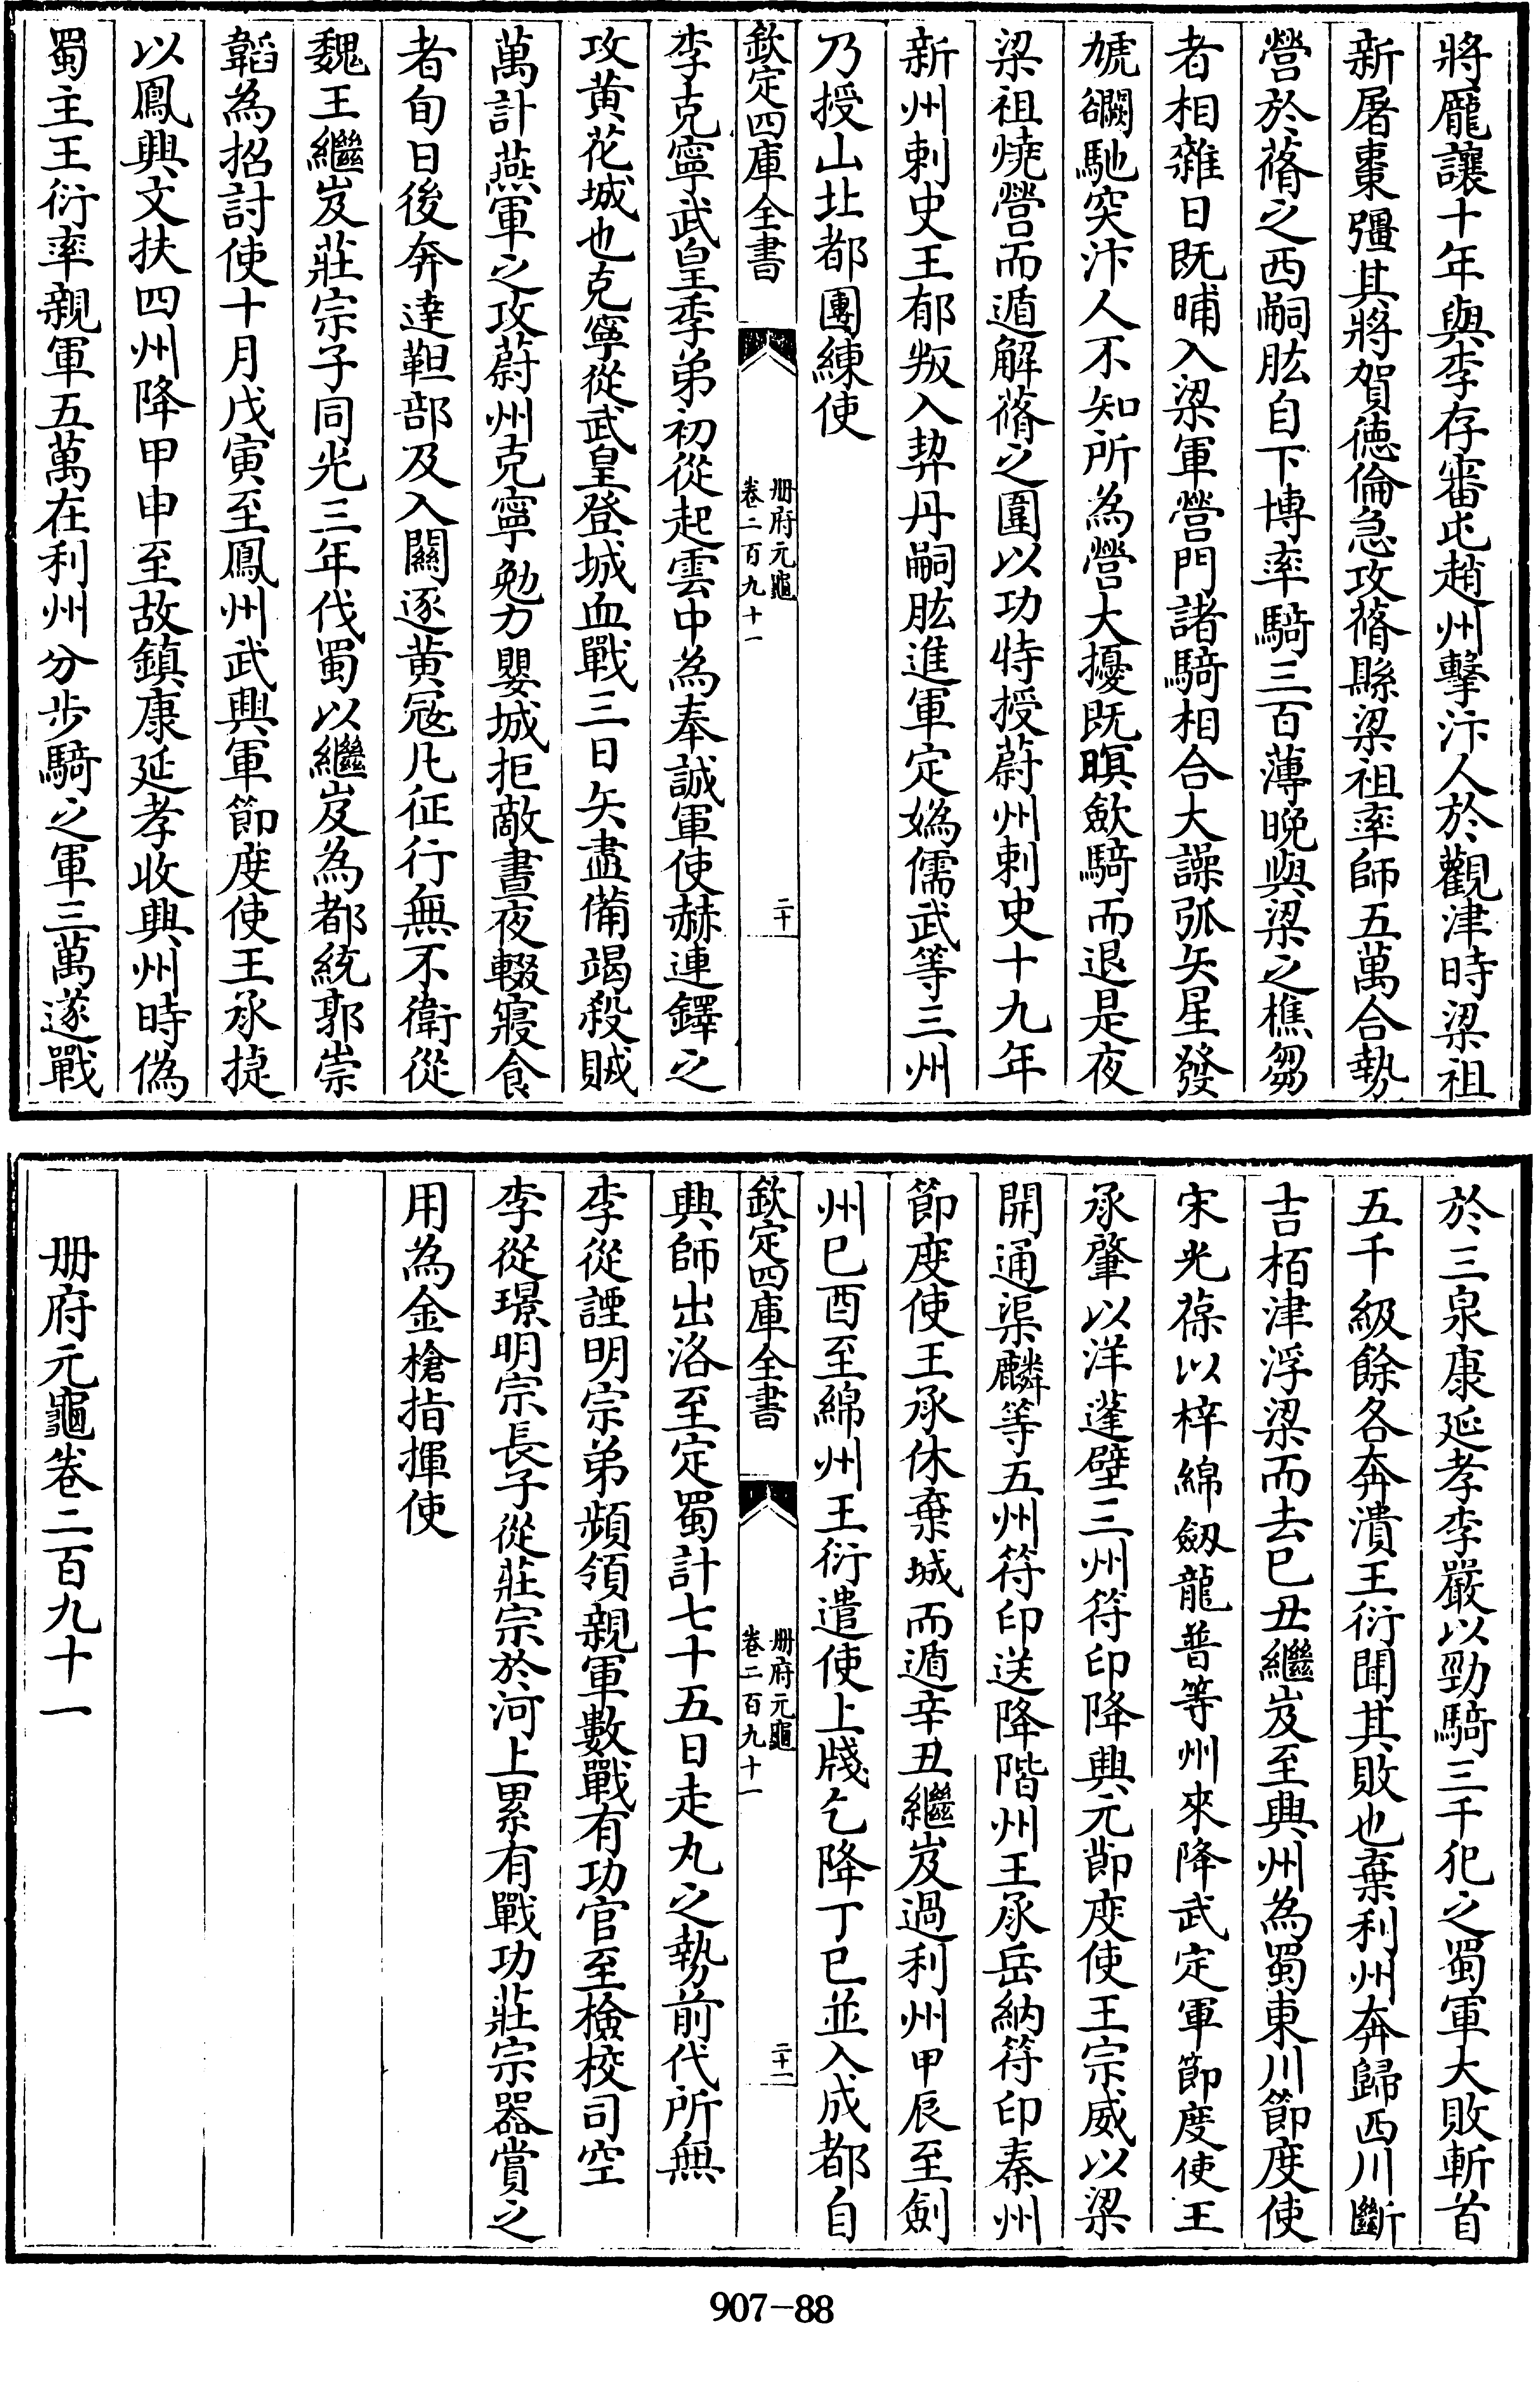 將龎讓十年與李存審屯趙州擊汴人於觀津時梁祖
新屠棗彊其將賀徳倫急攻蓨縣梁祖率師五萬合勢
營於蓨之西嗣肱自下博率騎三百薄晩與梁之樵芻
者相雜日既晡入梁軍營門諸騎相合大譟弧矢星發
虓闞馳突汴人不知所為營大擾既暝斂騎而退是夜
梁祖燒營而遁解蓨之圍以功特授蔚州刺史十九年
新州刺史王郁叛入契丹嗣肱進軍定媯儒武等三州
乃授山北都團練使
欽定四庫全書
册府元龜
卷二百九十一
二十
李克寧武皇季弟初從起雲中為奉誠軍使赫連鐸之
攻黄花城也克寧從武皇登城血戰三日矢盡備竭殺賊
萬計燕軍之攻蔚州克寧勉力嬰城拒敵晝夜輟寢食
者旬日後奔達靼部及入關逐黄冦凡征行無不衛從
魏王繼岌莊宗子同光三年伐蜀以繼岌為都統郭崇
韜為招討使十月戊寅至鳳州武興軍節度使王承捷
以鳳興文扶四州降甲申至故鎮康延孝收興州時偽
蜀主王衍率親軍五萬在利州分步騎之軍三萬遂戰
於三泉康延孝李嚴以勁騎三千犯之蜀軍大敗斬首
五千級餘各奔潰王衍聞其敗也棄利州奔歸西川斷
吉栢津浮梁而去已丑繼岌至興州為蜀東川節度使
宋光葆以梓綿劔龍普等州來降武定軍節度使王
承肇以洋蓬壁三州符印降興元節度使王宗威以梁
開通渠麟等五州符印送降階州王承岳納符印秦州
節度使王承休棄城而遁辛丑繼岌過利州甲辰至劍
州已酉至綿州王衍遣使上牋乞降丁巳並入成都自
欽定四庫全書
册府元龜
卷二百九十一
二十一
興師出洛至定蜀計七十五日走丸之勢前代所無
李從諲明宗弟頻領親軍數戰有功官至檢校司空
李從璟明宗長子從莊宗於河上累有戰功莊宗器賞之
用為金槍指揮使
册府元龜卷二百九十一
907-88